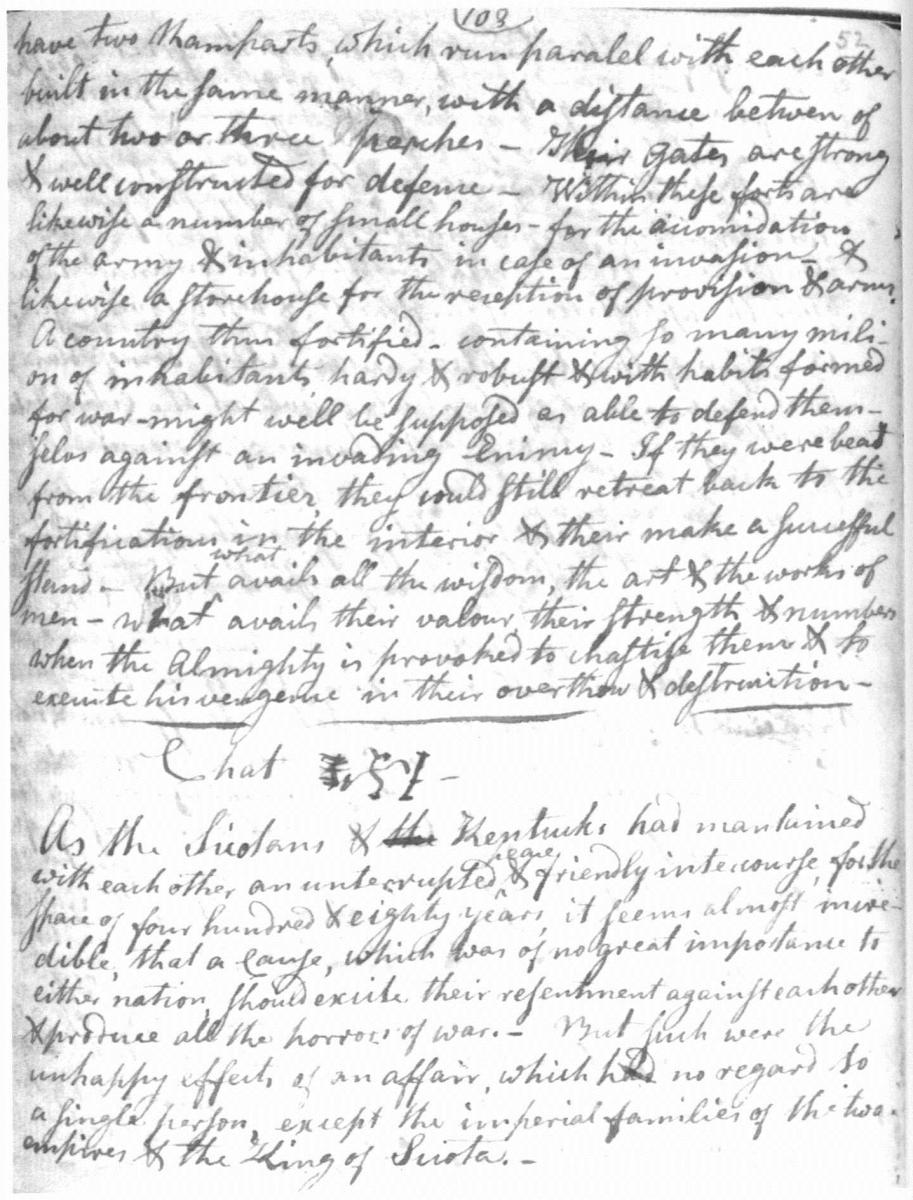 108
52
have two Ramparts, which run paralel with each other
built in the same manner, with a distance betwen of
about two or three perches — Their gates are strong
& well constructed for defence — Within these forts are
likewise a number of small houses - for the accomidation
of the army & inhabitants in case of an invasion - &
likewise a storehouse for the reception of provision & arms.
A country thus fortified - containing so many mili-
on of inhabitants hardy & robust & with habits formed
for war - might well be supposed as able to defend them-
selvs against an invading Enimy - If they were beat
from the frontier, they could still retreat back to the
fortifications in the interior & their make a succesful
stand - But what avails all the wisdom, the art & the works of
men - what avails their valour their strength & numbers
when the Almighty is provoked to chastise them & to
execute his vengence in their overthrow & destruction -
Chat
As the Sciotans & the Kentucks had mantained
with each other an unterrupted peace & friendly intercourse, for the
space of four hundred & eighty years, it seems almost incre-
dible, that a cause, which was of no great importance to
either nation, should excite their resentment against each other
& produce all the horrors of war. - But such were the
unhappy effects of an affair, which had no regard to
a single person, except the imperial families of the two
empires & the King of Sciota. -